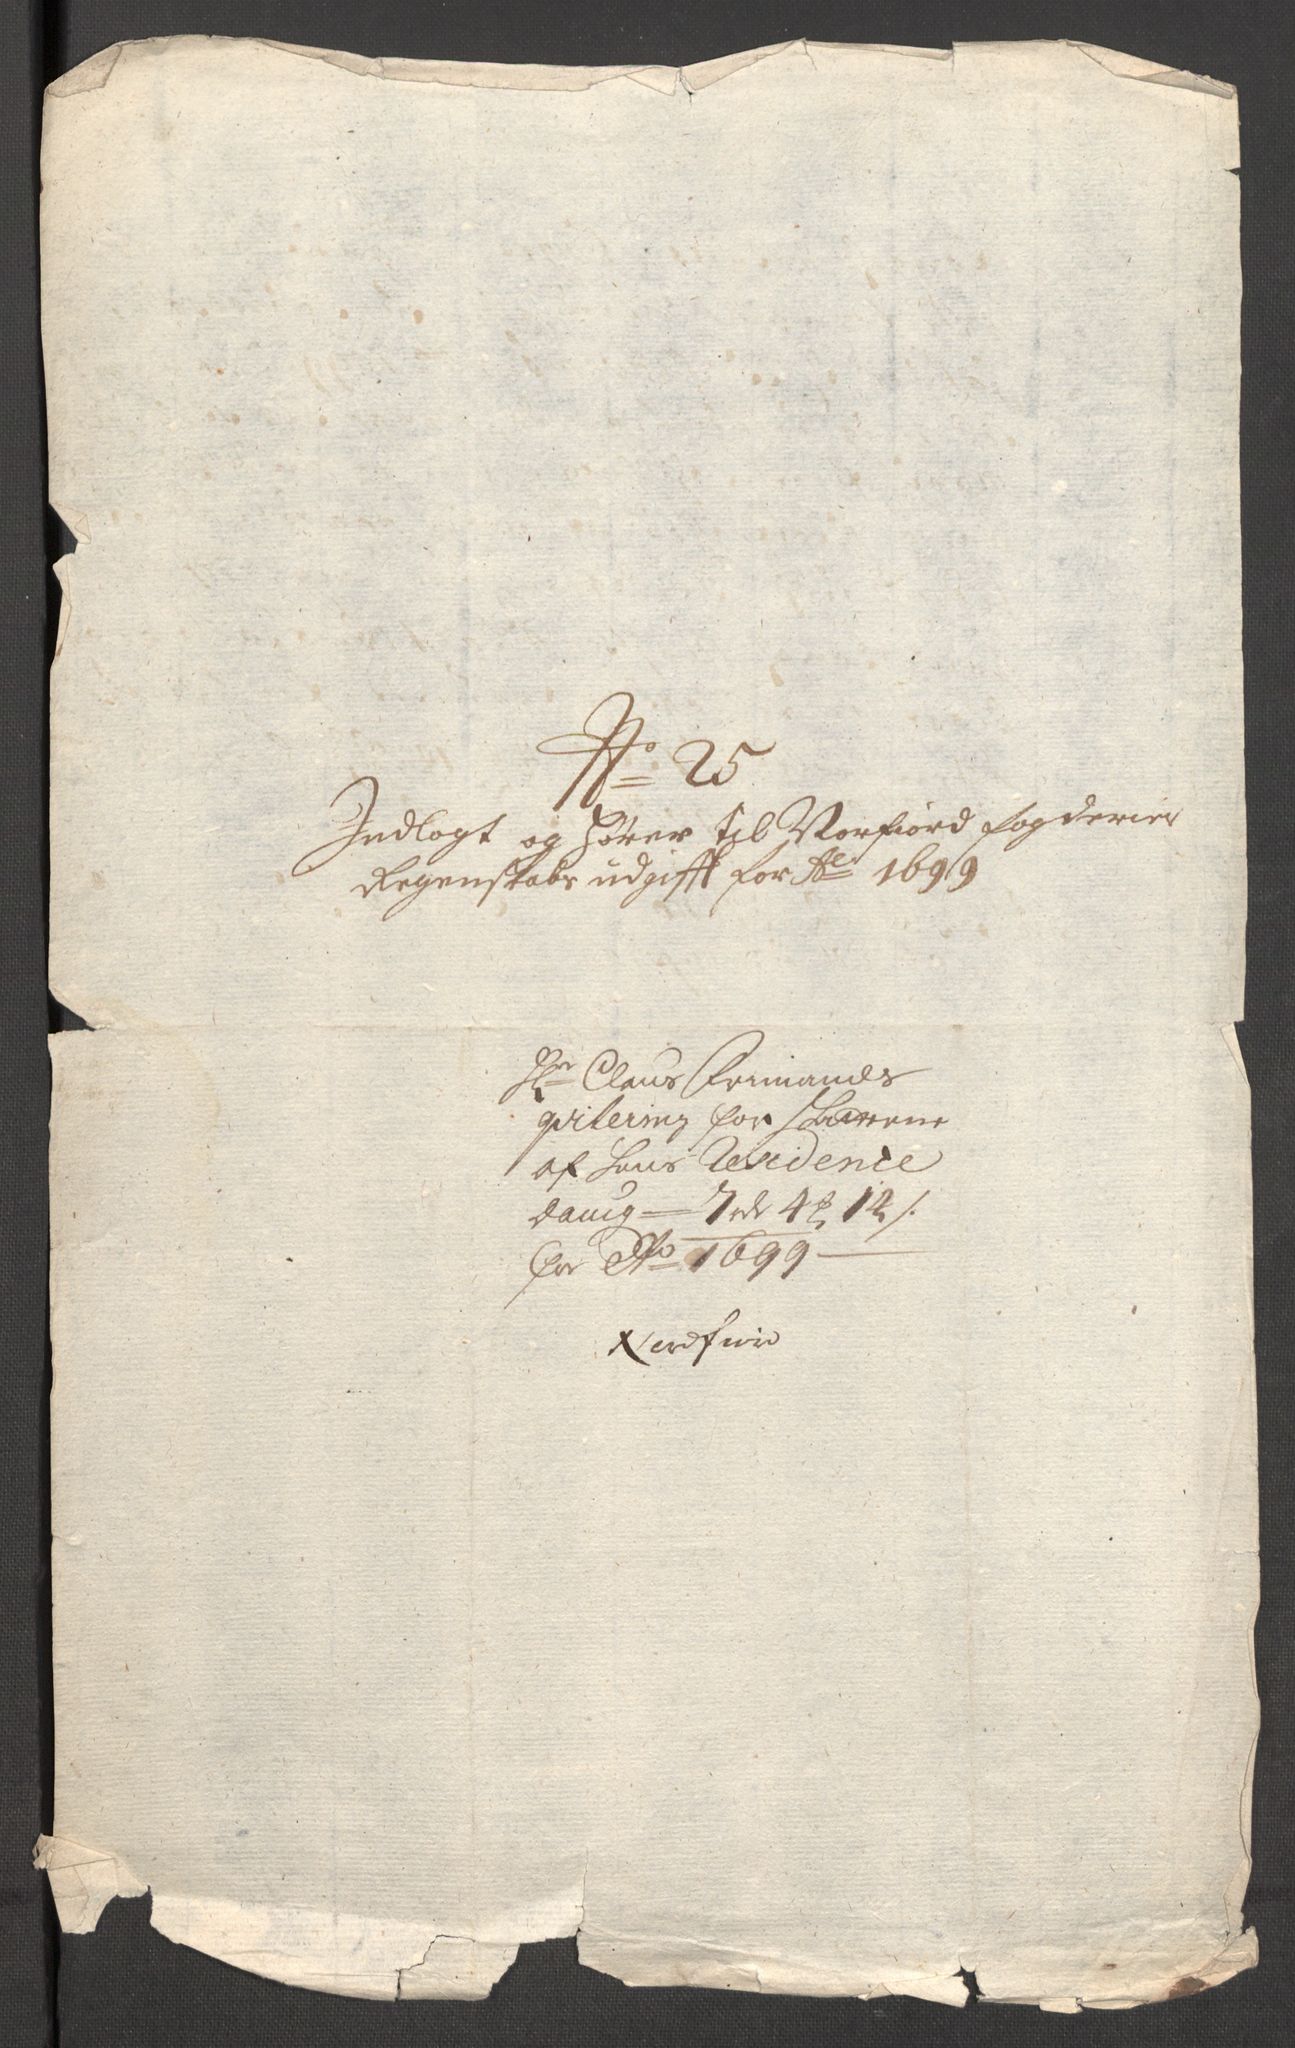 No 25
Indlagt og hører til Norfiord fogderies
Regenskabs udgifft for Ao 1699
Hr Claus Ermandes
qvitering for Skatterne
af hans Residence
dauig – 7 rdr 4 ß 12 /.
for Ao 1699 –
Nerdfiord